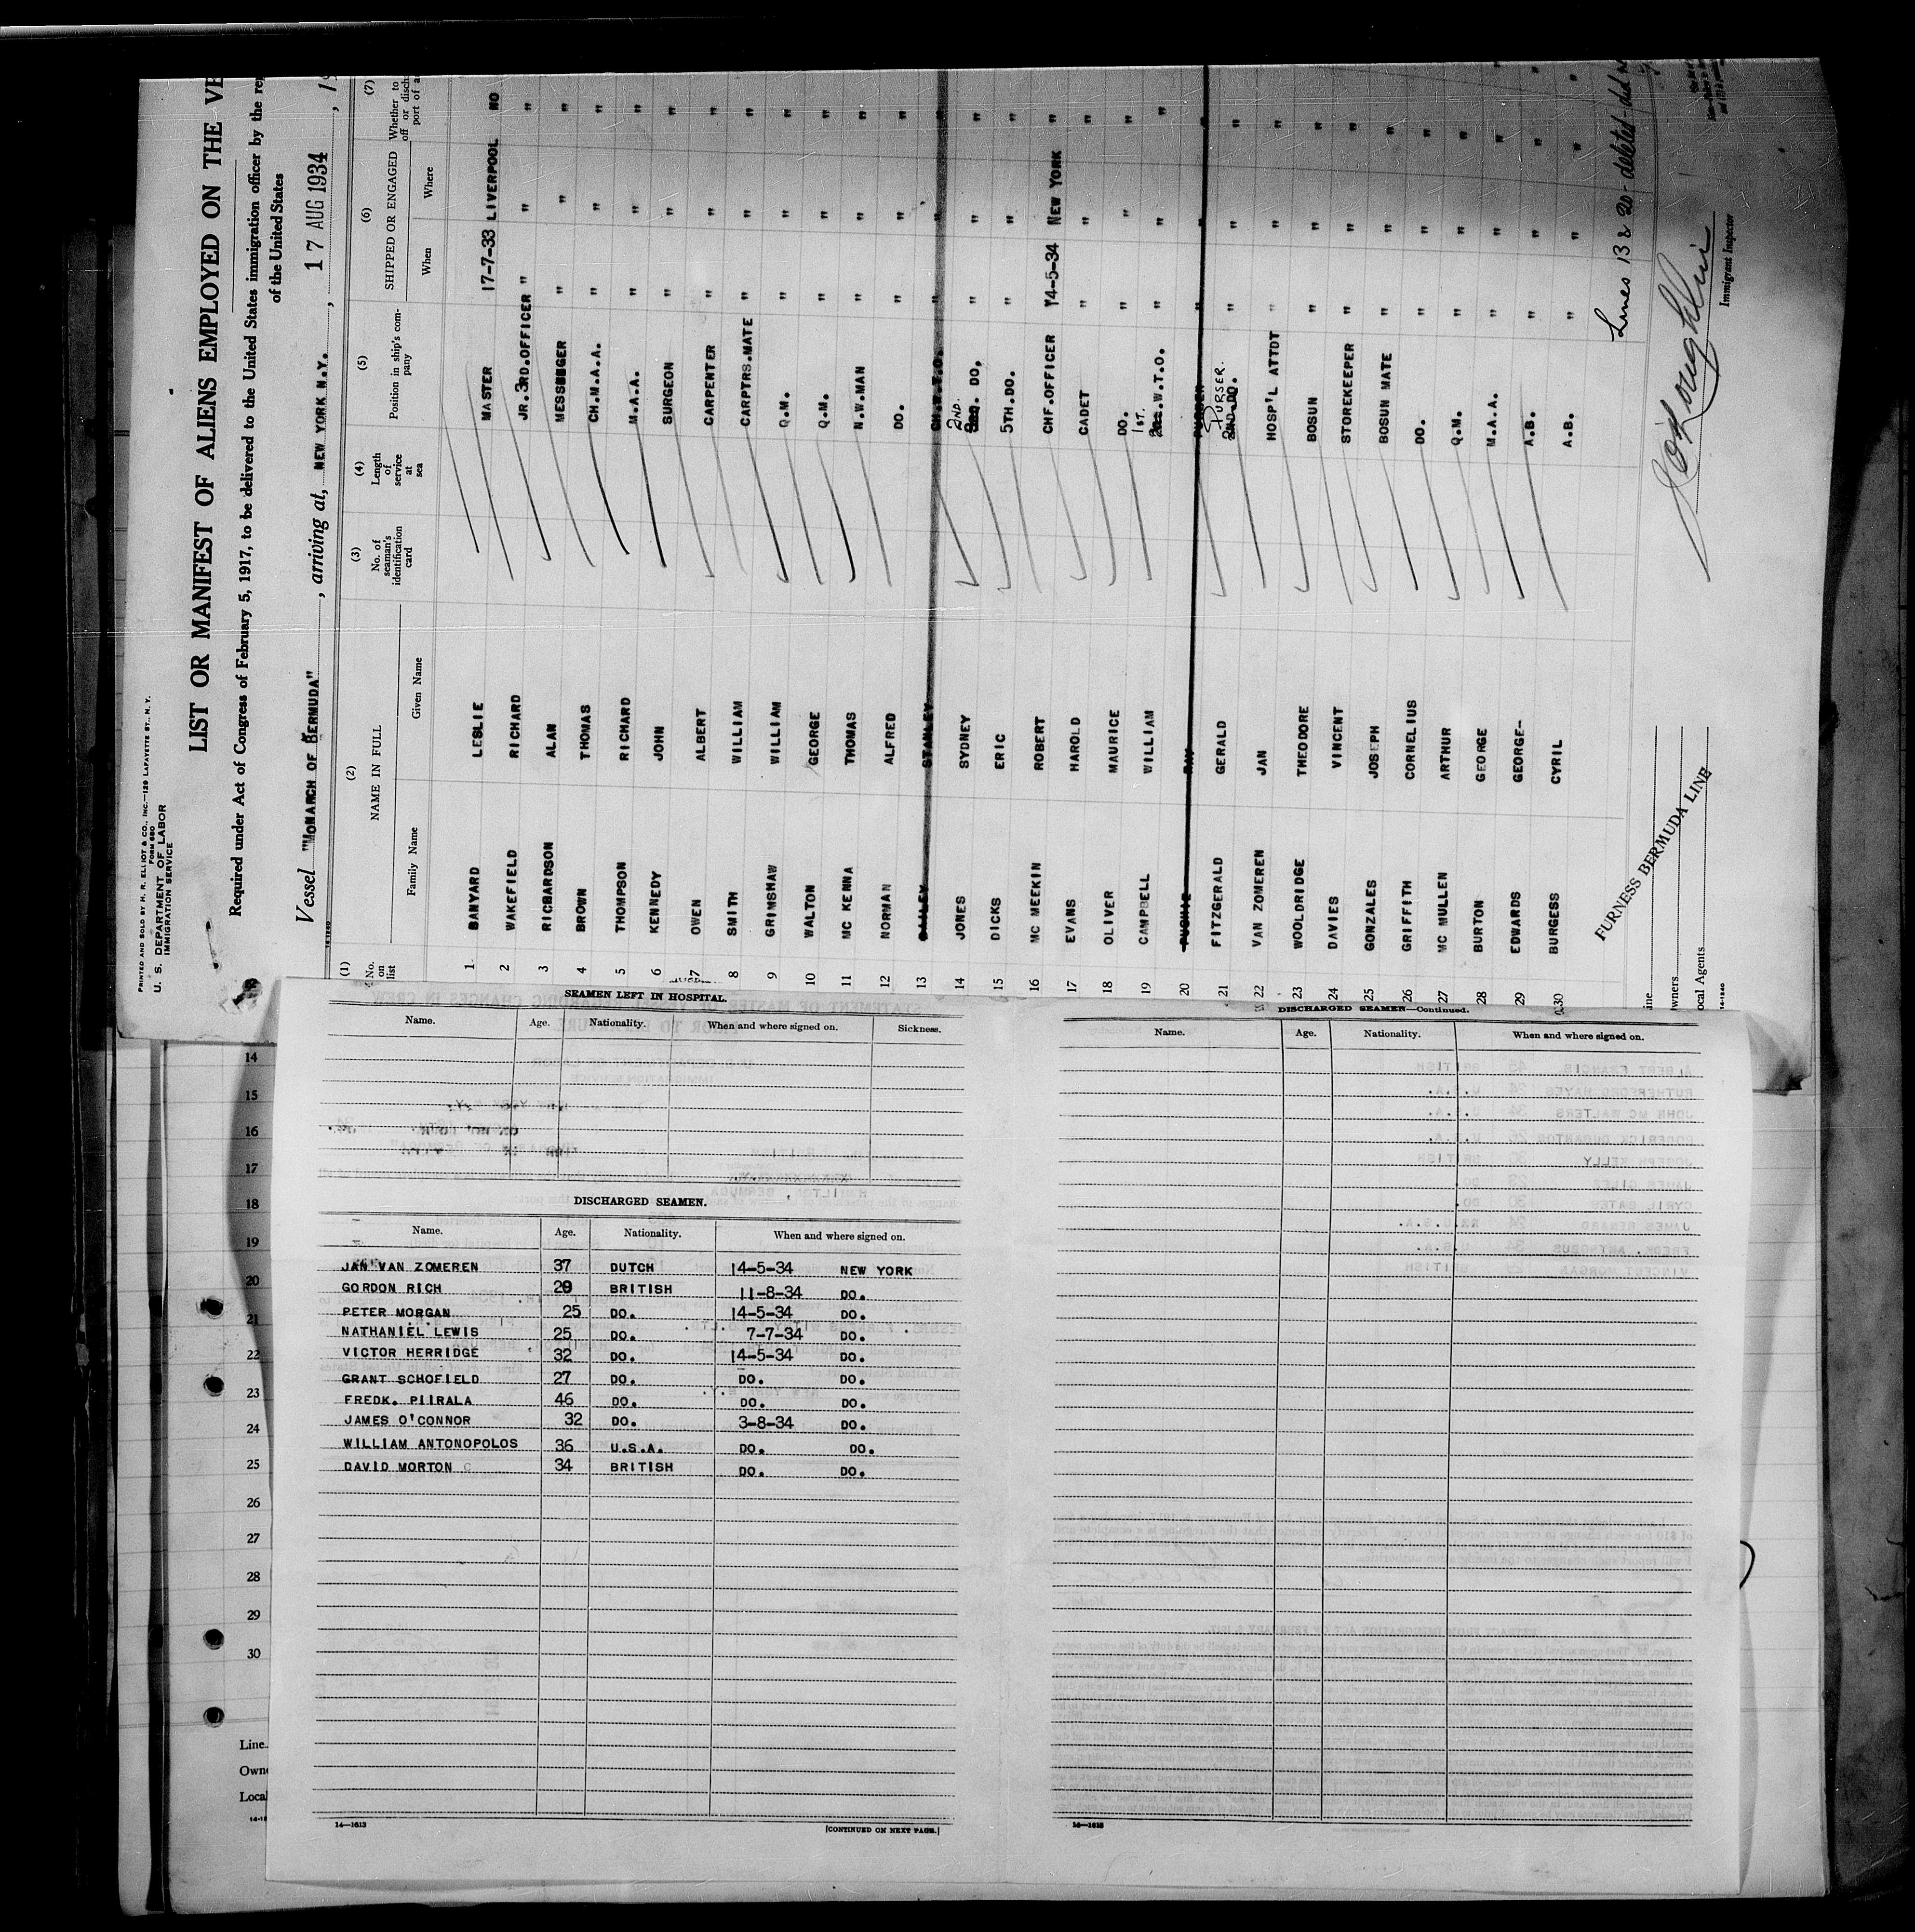 PRINTED AND SOLD BY H. R. ELLIOT & CO., INC.—129 LAFAYETTE ST., N. Y.
FORM 680
U. S. DEPARTMENT OF LABOR
IMMIGRATION SERVICE
LIST OR MANIFEST OF ALIENS EMPLOYED ON THE VE
Required under Act of Congress of February 5, 1917, to be delivered to the United States immigration officer by the rep
of the United States
Vessel "MONARCH OF BERMUDA", arriving at, NEW YORK N.Y., 17 AUG 1934, 19
14-1240
(1) (2) (3) (4) (5) (6) (7)
No. on list NAME IN FULL No. of seaman's identification card Length of service at sea Position in ship's company SHIPPED OR ENGAGED Whether to
off or disch
port of a
Family Name Given Name When Where
1 BANYARD LESLIE MASTER 17-7-33 LIVERPOOL NO
2 WAKEFIELD RICHARD JR.3RD.OFFICER " " "
3 RICHARDSON ALAN MESSENGER " " "
4 BROWN THOMAS CH.M.A.A. " " "
5 THOMPSON RICHARD M.A.A. " " "
6 KENNEDY JOHN SURGEON " " "
7 OWEN ALBERT CARPENTER " " "
8 SMITH WILLIAM CARPTRS.MATE " " "
9 GRIMSHAW WILLIAM Q.M. " " "
10 WALTON GEORGE Q.M. " " "
11 MC KENNA THOMAS N.W.MAN " " "
12 NORMAN ALFRED DO. " " "
13 BAILEY STANLEY CH.W.T.O. " " "
14 JONES SYDNEY 2ND. DO. " " "
15 DICKS ERIC 5TH.DO. " " "
16 MC MEEKIN ROBERT CHF.OFFICER 14-5-34 NEW YORK "
17 EVANS HAROLD CADET " " "
18 OLIVER MAURICE DO. " " "
19 CAMPBELL WILLIAM 1ST. .W.T.O. " " "
20 RAY PURSER " " "
21 FITZGERALD GERALD PURSER. 2ND.DO. " " "
22 VAN ZOMEREN JAN HOSP'L ATTDT " " "
23 WOOLDRIDGE THEODORE BOSUN " " "
24 DAVIES VINCENT STOREKEEPER " " "
25 GONZALES JOSEPH BOSUN MATE " " "
26 GRIFFITH CORNELIUS DO. " " "
27 MC MULLEN ARTHUR Q.M. " " "
28 BURTON GEORGE M.A.A. " " "
29 EDWARDS GEORGE- A.B. " " "
30 BURGESS CYRIL A.B. " " "
Lines 13 & 20 - deleted - did n
FURNESS BERMUDA LINE
ine
wners
ocal Agents
14-1240
Immigrant Inspector
14
15
16
17
18
19
20
21
22
23
24
25
26
27
28
29
30
Line
Owne
Local
14-12
SEAMEN LEFT IN HOSPITAL.
Name. Age. Nationality. When and where signed on. Sickness.
DISCHARGED SEAMEN.
Name. Age. Nationality. When and where signed on.
JAN VAN ZOMEREN 37 DUTCH 14-5-34 NEW YORK
GORDON RICH 29 BRITISH 11-8-34 DO.
PETER MORGAN 25 DO. 14-5-34 DO.
NATHANIEL LEWIS 25 DO. 7-7-34 DO.
VICTOR HERRIDGE 32 DO. 14-5-34 DO.
GRANT SCHOFIELD 27 DO. DO. DO.
FREDK. PIIRALA 46 DO. DO. DO.
JAMES O'CONNOR 32 DO. 3-8-34 DO.
WILLIAM ANTONOPOLOS 36 U.S.A. DO. DO.
DAVID MORTON 34 BRITISH DO. DO.
14—1613
[CONTINUED ON NEXT PAGE.]
DISCHARGED SEAMEN—Continued.
Name. Age. Nationality. When and where signed on.
14—1613